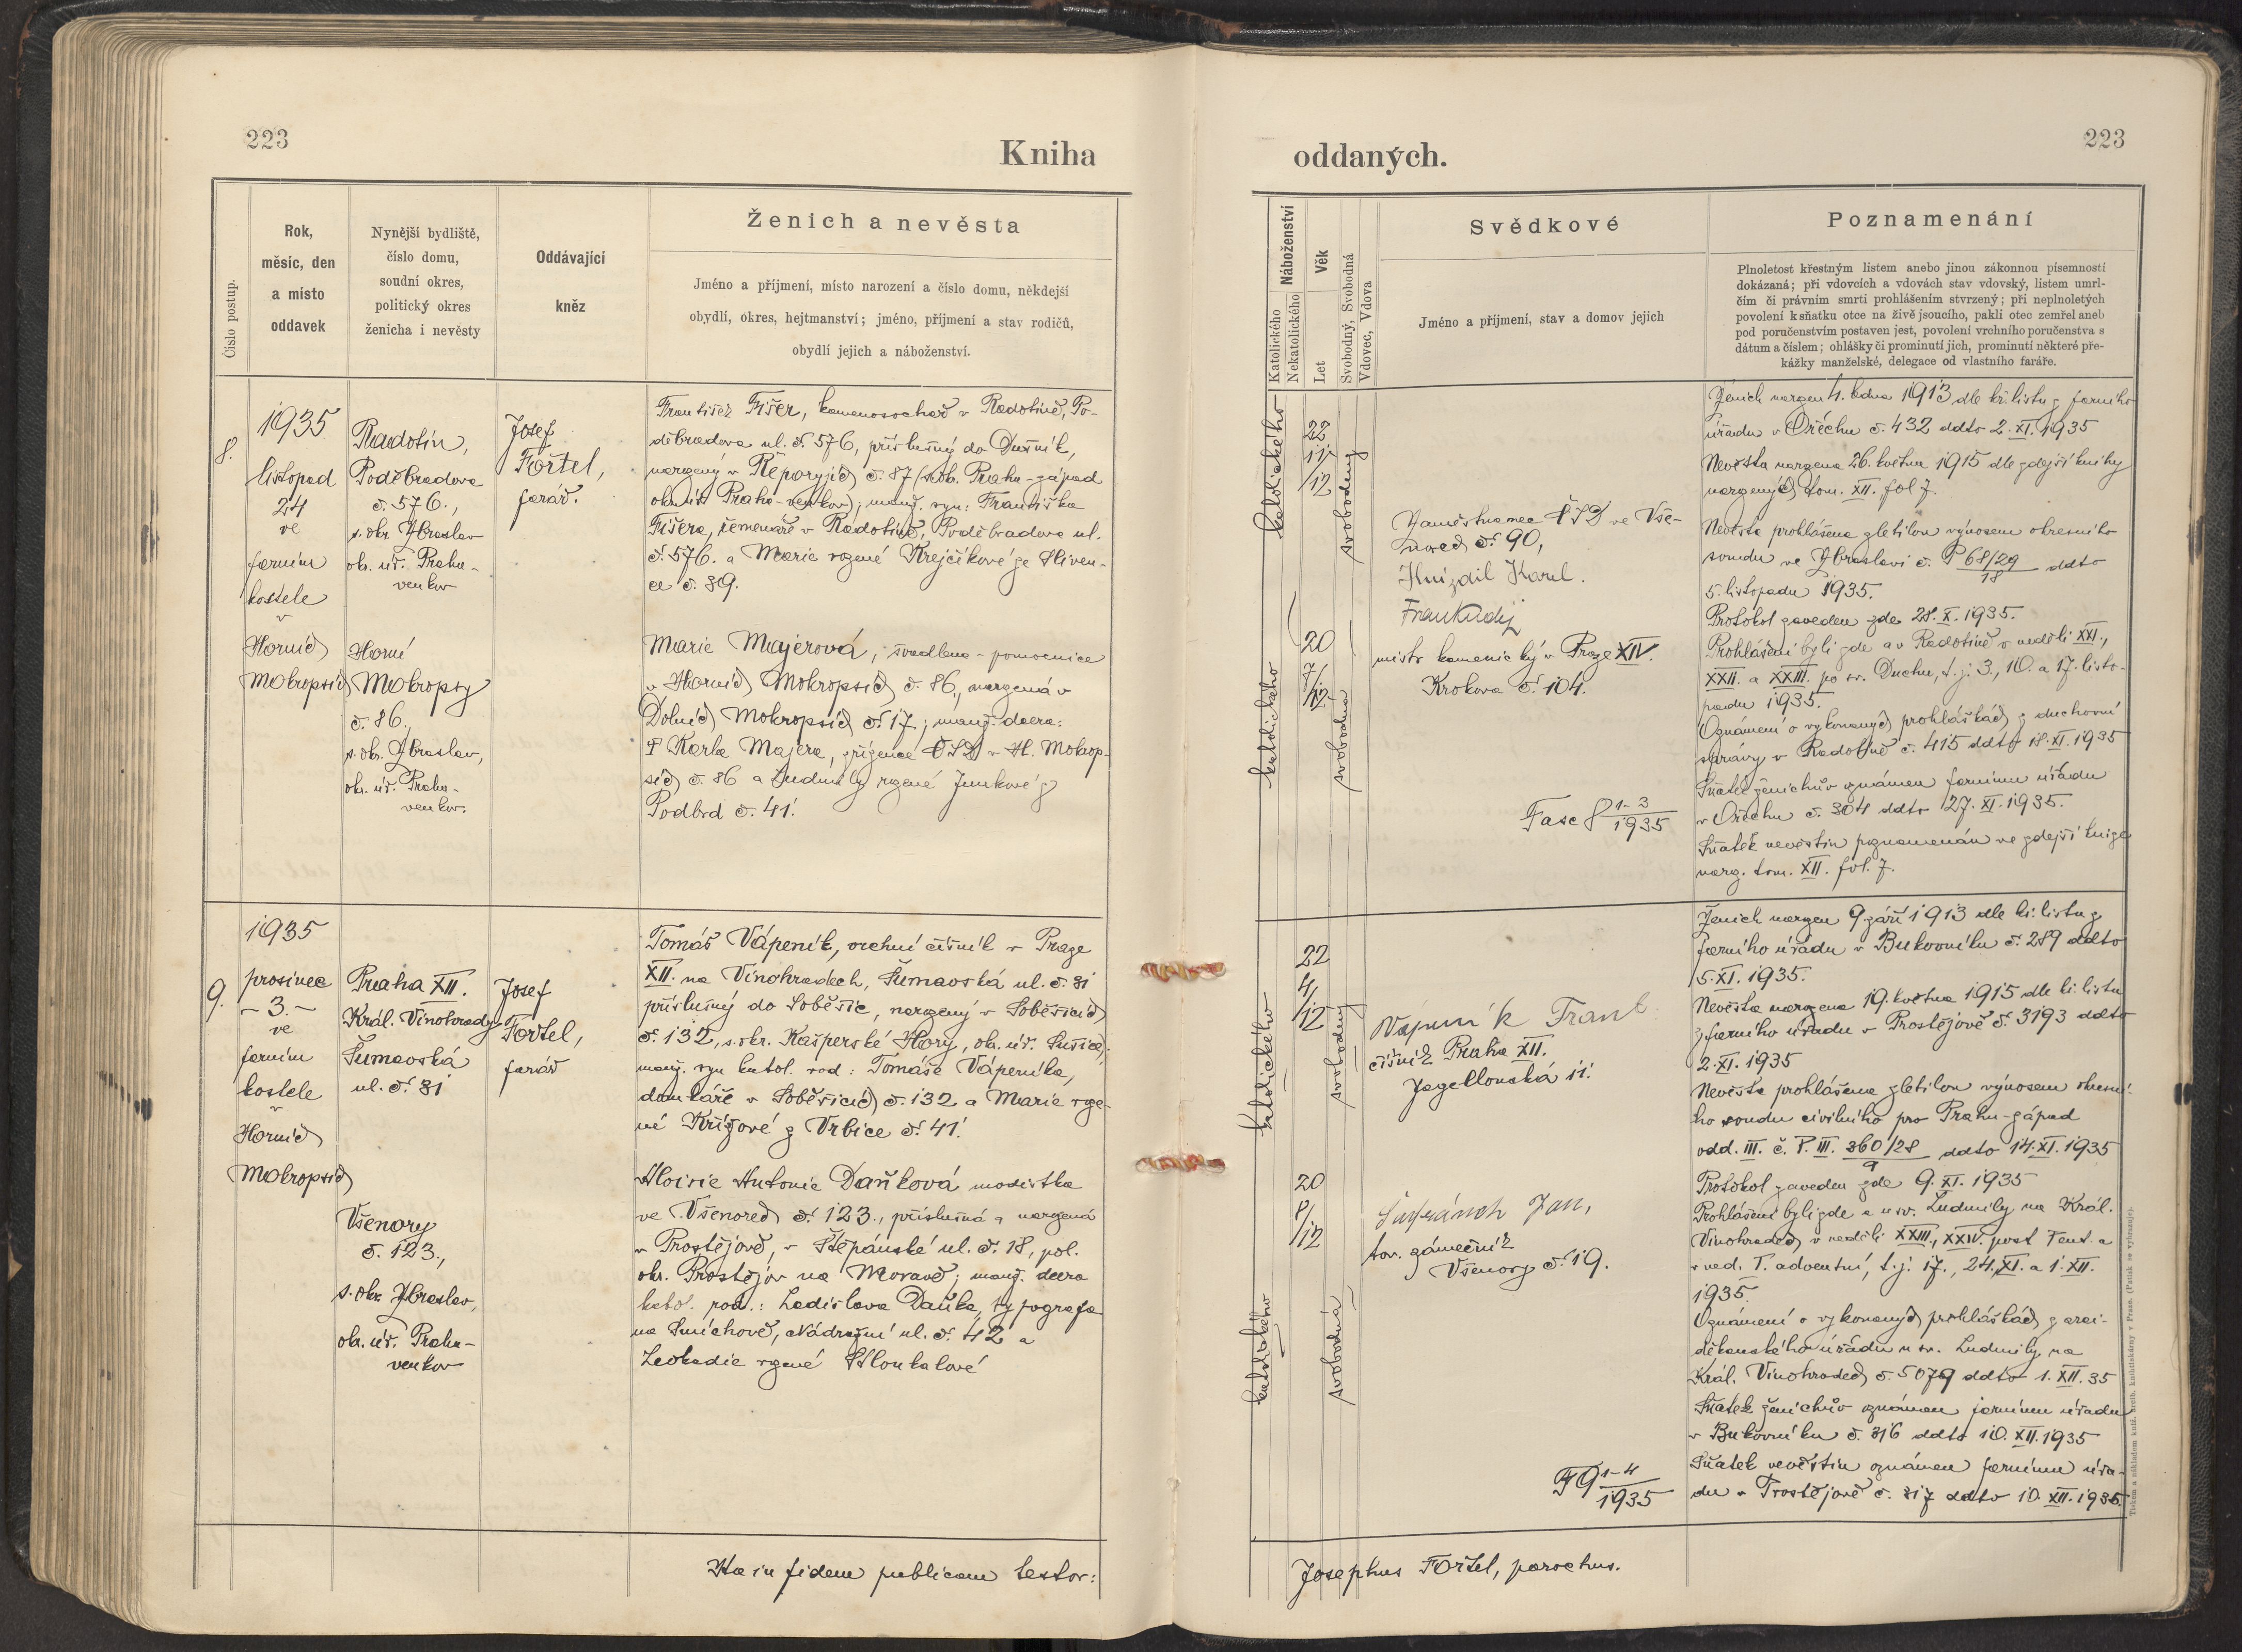 223
Kniha
Číslo postup.
Rok,
měsíc, den
a místo
oddavek
Nynější bydliště,
číslo domu,
soudní okres,
politický okres
ženicha i nevěsty
Oddávající
kněz
Ženich a nevěsta
Jméno a příjmení, místo narození a číslo domu, někdejší
obydlí, okres, hejtmanství; jméno, příjmení a stav rodičů,
obydlí jejich a náboženství.
8.
1935
listopad
24
ve
farním
kostele
v
Horních
Mokropsích
Radotín,
Poděbradova
č. 576.,
s. okr. Zbraslav
ok. úř. Praha-
venkov
Horní
Mokropsy
č. 86.,
s. ok. Zbraslav,
ok. úř. Praha-
venkov.
Josef
Fořtel,
farář.
František Fišer, kamenosochař v Radotíně, Po-
děbradova ul. č. 576, příslušný do Dušník,
narozený v Řeporyjích č. 87 (s. ok. Praha-západ
okr. úř. Praha-venkov); manž. syn: Františka
Fišera, řemenáře v Radotíně, Poděbradova ul.
č. 576. a Marie rozené Krejčíkové ze Sliven-
ce č. 39.
Marie Majerová, švadlena-pomocnice
v Horních Mokropsích č. 86., narozená v
Dolních Mokropsích č. 17; manž. dcera:
† Karla Majera, zřízence ČSD v H. Mokrop-
sích č. 86 a Ludmily rozené Junkové z
Podbrd č. 41.
9.
1935
prosinec
- 3. -
ve
farním
kostele
v
Horních
Mokropsích
Praha XII.
Král. Vinohrady
Šumavská
ul. č. 31
Všenory
č. 123.,
s. okr. Zbraslav,
ok. úř. Praha-
venkov
Josef
Fořtel,
farář
Tomáš Vápeník, vrchní číšník v Praze
XII. na Vinohradech, Šumavská ul. č. 31
příslušný do Soběšic, narozený v Soběšicích
č. 132, s. okr. Kašperské Hory, ok. úř. Sušice;
manž. syn katol. rod: Tomáše Vápeníka,
domkáře v Soběšicích č. 132 a Marie roze-
né Křížové z Vrbice č. 41.
Aloisie Antonie Daňková modistka
ve Všenorech č. 123., příslušná a narozená
v Prostějově, v Štěpánské ul. č. 18, pol.
okr. Prostějov na Moravě; manž. dcera
katol. rod.: Ladislava Daňka, typografa
na Smíchově, Nádražní ul. č. 42 a
Leokadie rozené Hloukalové
Ita in fidem publicam testor:
223
oddaných.
Náboženství
Katolického
Nekatolického
Věk
Let
Svobodný, Svobodná
Vdovec, Vdova
Svědkové
Jméno a příjmení, stav a domov jejich
Poznamenání
Plnoletost křestným listem anebo jinou zákonnou písemností
dokázaná; při vdovcích a vdovách stav vdovský, listem umrl-
čím či právním smrti prohlášením stvrzený; při neplnoletých
povolení k sňatku otce na živě jsoucího, pakli otec zemřel aneb
pod poručenstvím postaven jest, povolení vrchního poručenstva s
dátum a číslem; ohlášky či prominutí jich, prominutí některé pře-
kážky manželské, delegace od vlastního faráře.
katolického
22
11/12
svobodný
Zaměstnanec ČSD ve Vše-
norech č. 90,
Hnízdil Karel.
mistr kamenický v Praze XIV.
Krokova č. 104.
katolického
20
7/12
svobodná
Fasc 8 1-3/1935
Ženich narozen 4. ledna 1913 dle kř. listu z farního
úřadu v Ořechu č. 432 ddto 2. XI. 1935
Nevěsta narozena 26. května 1915 dle zdejší knihy
narozených tom. XII. fol 7.
Nevěsta prohlášena zletilou výnosem okresního
soudu ve Zbraslavi č. P 68/29/18 ddto
5. listopadu 1935.
Protokol zaveden zde 28. X. 1935.
Prohlášeni byli zde a v Radotíně v neděli XXI.,
XXII. a XXIII. po sv. Duchu, t. j. 3., 10. a 17. listo-
padu 1935.
Oznámení o vykonaných prohláškách z duchovní
správy v Radotíně č. 415 ddto 18. XI. 1935
Sňatek ženichův oznámen farnímu úřadu
v Ořechu č. 304 ddto 27. XI. 1935.
Sňatek nevěstin poznamenán ve zdejší knize
naroz. tom. XII. fol. 7.
katolického
22
4/12
svobodný
Vápeník Frant.
číšník Praha XII.
Jagellonská 11.
katolického
20
8/12
svobodná
Jan,
tov. zámečník
Všenory č. 19.
F 9 1-4/1935
Ženich narozen 9. září 1913 dle kř. listu z
farního úřadu v Bukovníku č. 289 ddto
5. XI. 1935.
Nevěsta narozena 19. května 1915 dle kř. listu
z farního úřadu v Prostějově č. 3193 ddto
2. XI. 1935
Nevěsta prohlášena zletilou výnosem okresní-
ho soudu civilního pro Prahu-západ
odd. III. č. P. III. 360/28/9 ddto 14. XI. 1935
Protokol zaveden zde 9. XI. 1935
Prohlášeni byli zde a u sv. Ludmily na Král.
Vinohradech v neděli XXIII., XXIV. post Pent. a
v ned. I. adventní, t. j. 17., 24. XI. a 1. XII.
1935.
Oznámení o vykonaných prohláškách z arci-
děkanského úřadu u sv. Ludmily na
Král. Vinohradech č. 5079 ddto 1. XII. 35
Sňatek ženichův oznámen farnímu úřadu
v Bukovníku č. 316 ddto 10. XII. 1935
Sňatek nevěstin oznámen farnímu úřa-
du v Prostějově č. 317 ddto 10. XII. 1935.
Josephus Fořtel, parochus.